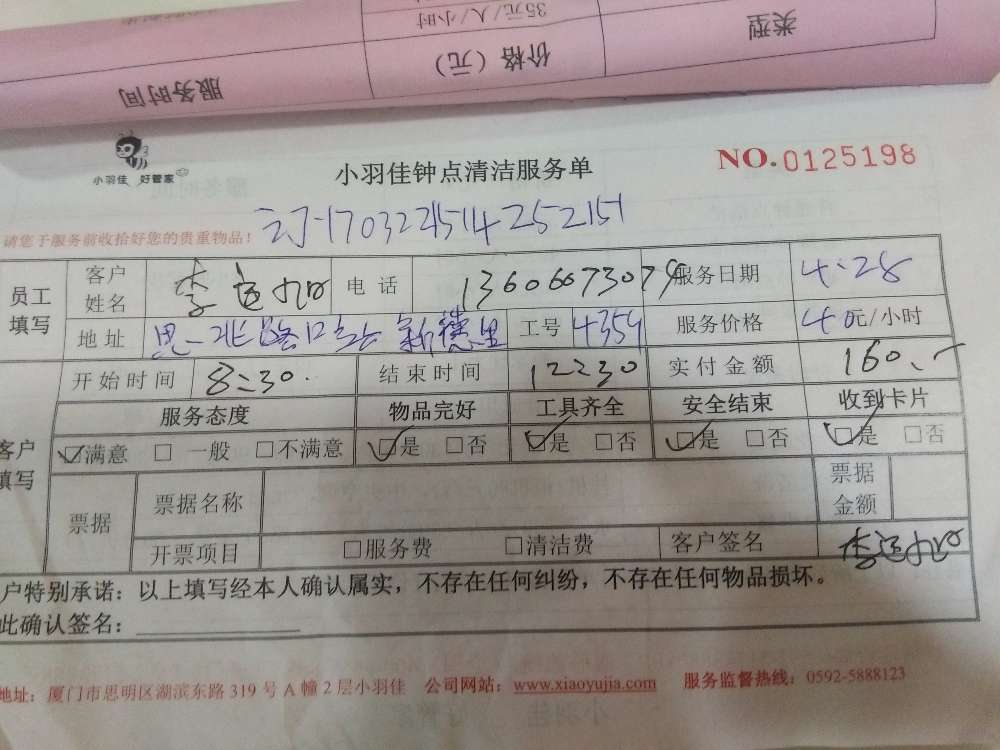 服务时间 价格（元） 类型
35元/人/小时
小羽佳 好管家
小羽佳钟点清洁服务单 NO.0125198
订170321514252151
请您于服务前收拾好您的贵重物品！
员工填写 客户姓名 李 电话 服务日期 4.28
地址 思 北路口 新德里 工号 4354 服务价格 40元/小时
开始时间 8:30. 结束时间 12:30 实付金额 160.-
服务态度 物品完好 工具齐全 安全结束 收到卡片
客户填写 ☑满意 □一般 □不满意 ☑是 □否 ☑是 □否 ☑是 □否 ☑是 □否
票据 票据名称 票据金额
开票项目 □服务费 □清洁费 客户签名 李
户特别承诺：以上填写经本人确认属实，不存在任何纠纷，不存在任何物品损坏。
此确认签名：
地址：厦门市思明区湖滨东路319号A幢2层小羽佳 公司网站：www.xiaoyujia.com 服务监督热线：0592-5888123